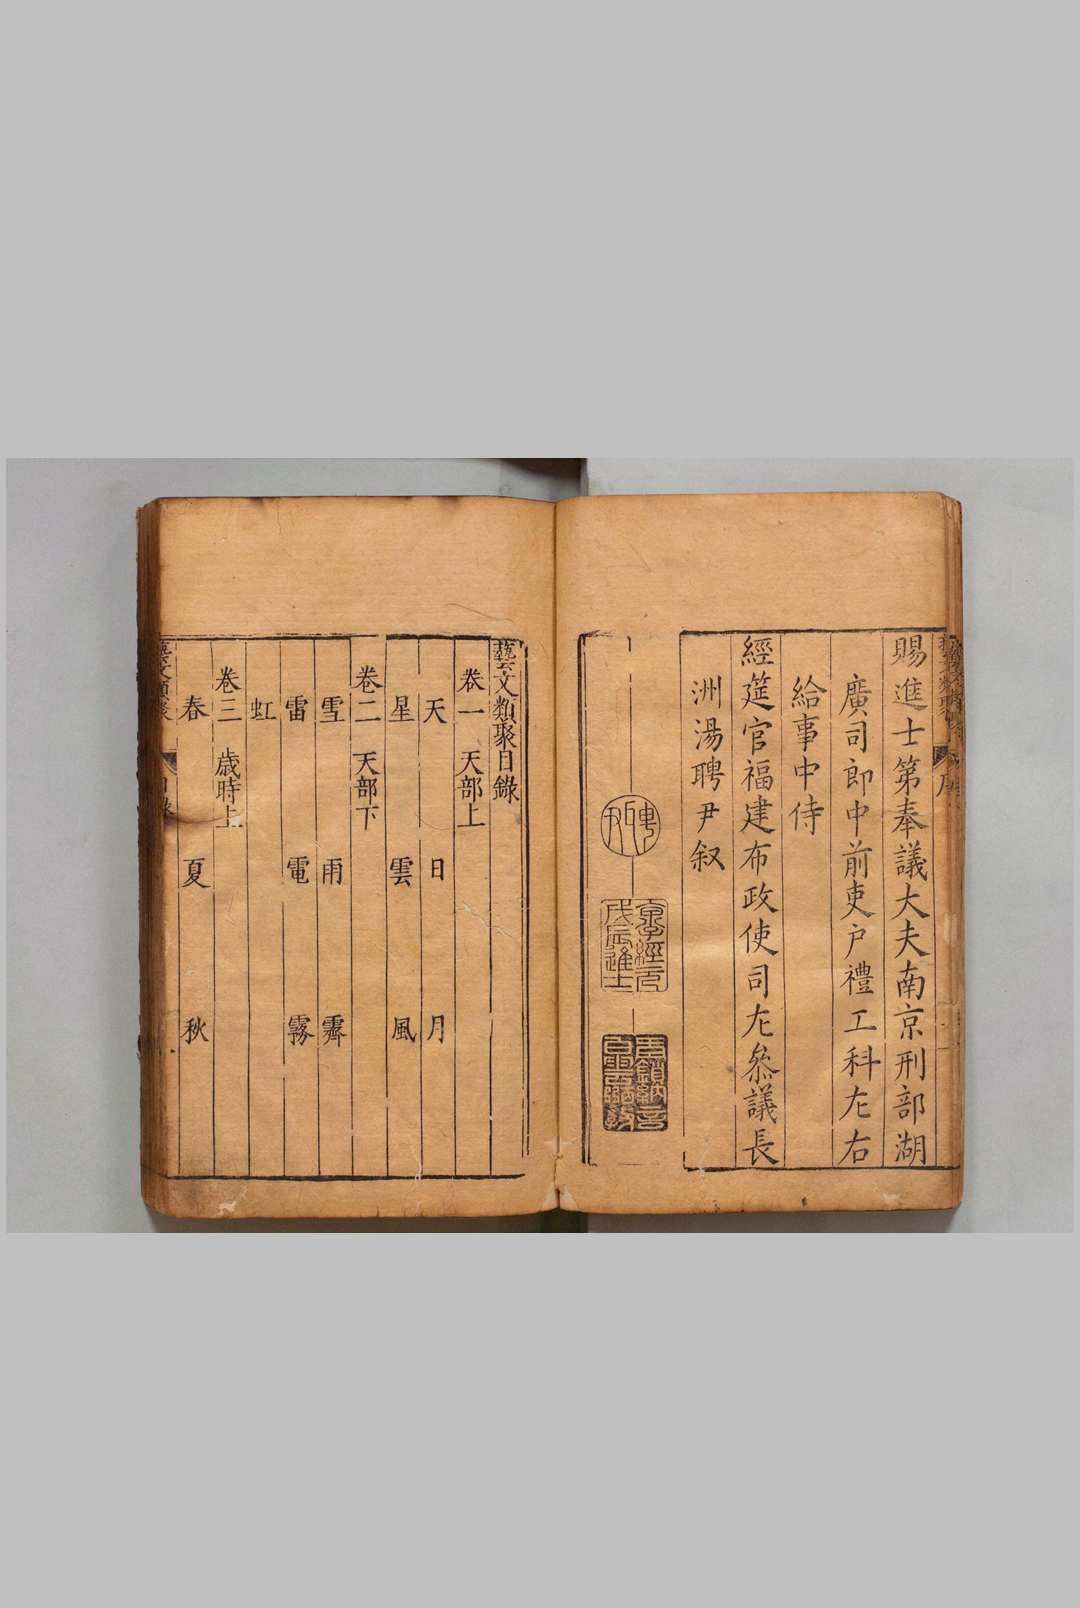 賜進士第奉議大夫南京刑部湖
廣司郎中前吏户禮工科左右
給事中侍
經筵官福建布政使司左叅議長
洲湯聘尹叙
戊辰進士
藝文類聚目錄
卷一 天部上
天 日 月
星 雲 風
卷二 天部下
雪 雨 霽
雷 電 霧
虹
卷三 歲時上
春 夏 秋
藝文類聚 目錄